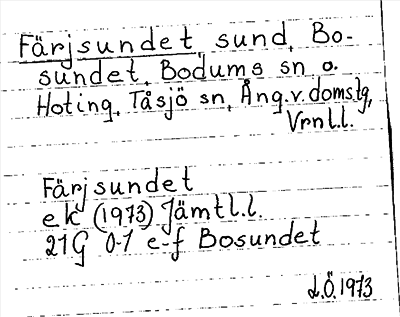 Färjsundet, sund, Bo-
sundet, Bodums sn o.
Hoting, Tåsjö sn, Ång.v.domstg,
Vrnl.l.
Färjsundet
ek (1973) Jämtl.l.
21G 0-1 e-f Bosundet
L.Ö.1973